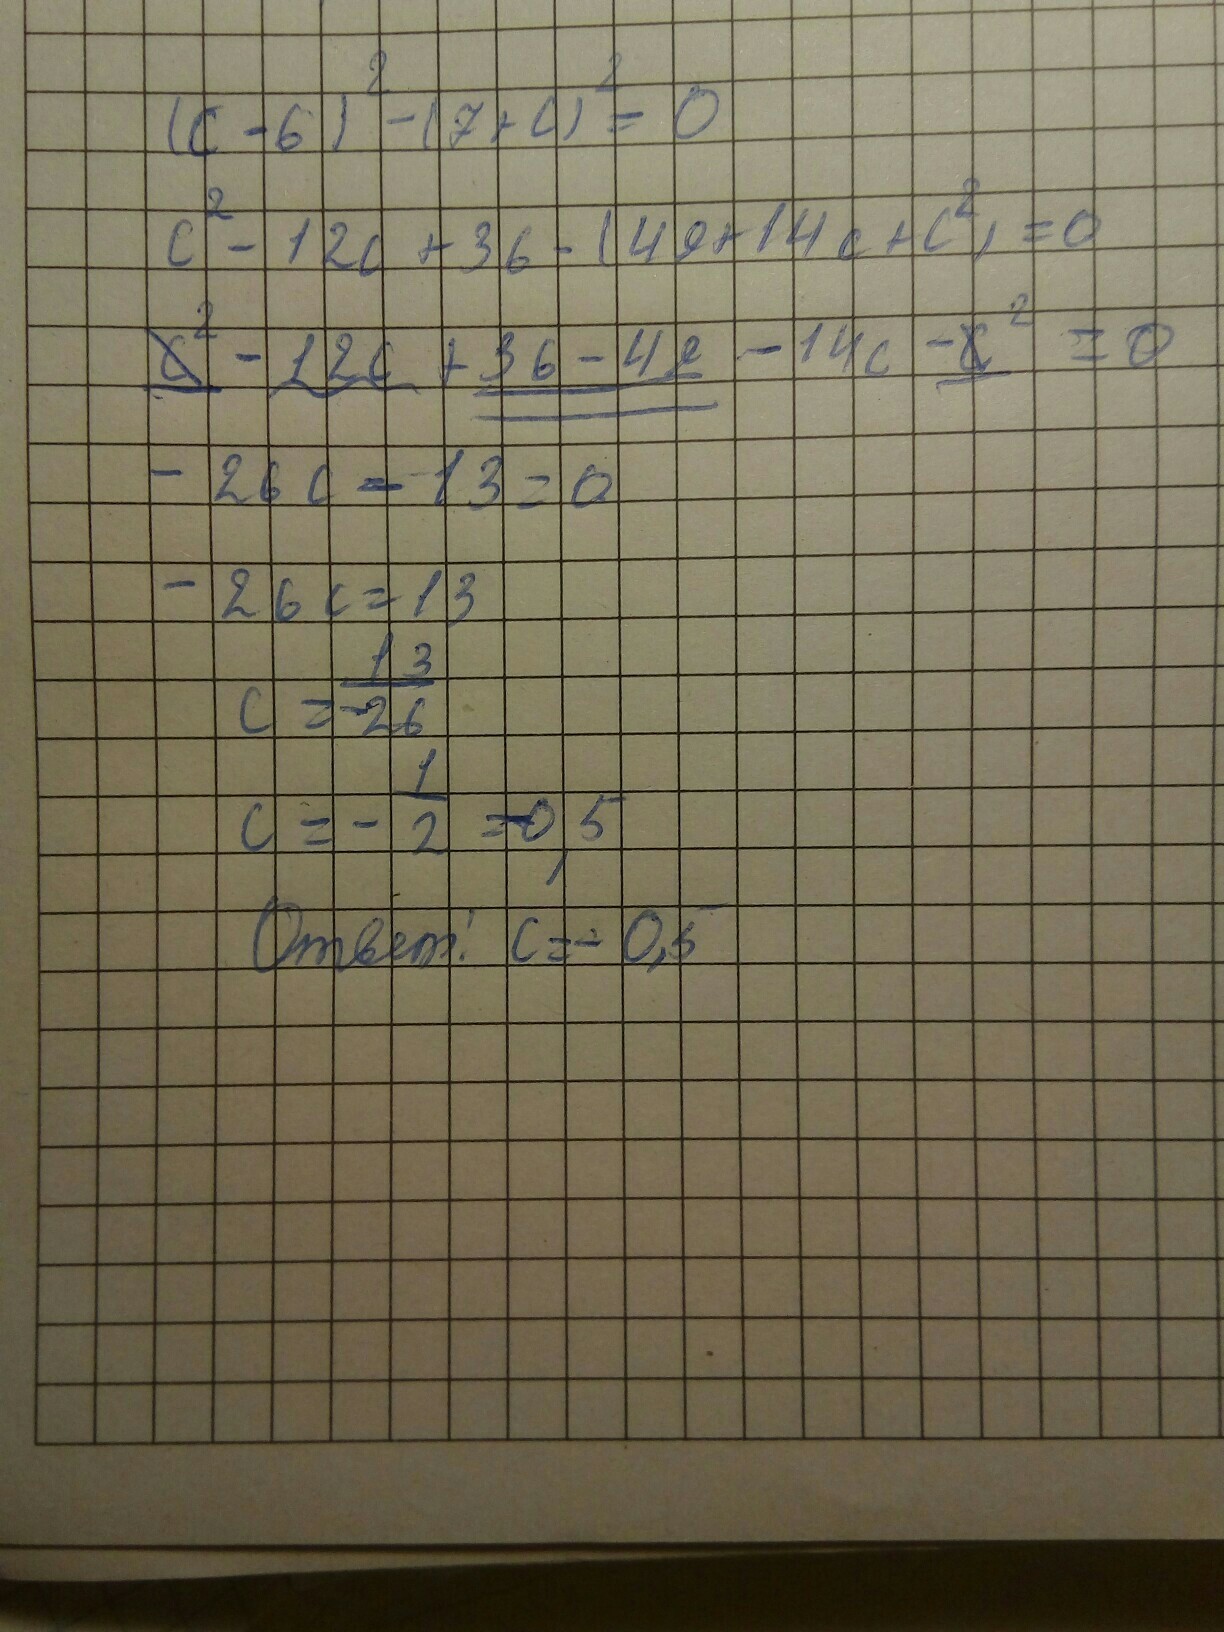 (c - 6)² - (7 + c)² = 0
c² - 12c + 36 - (49 + 14c + c²) = 0
c² - 12c + 36 - 49 - 14c - c² = 0
- 26c - 13 = 0
- 26c = 13
c = 13/-26
c = - 1/2 = -0,5
Ответ: c = - 0,5